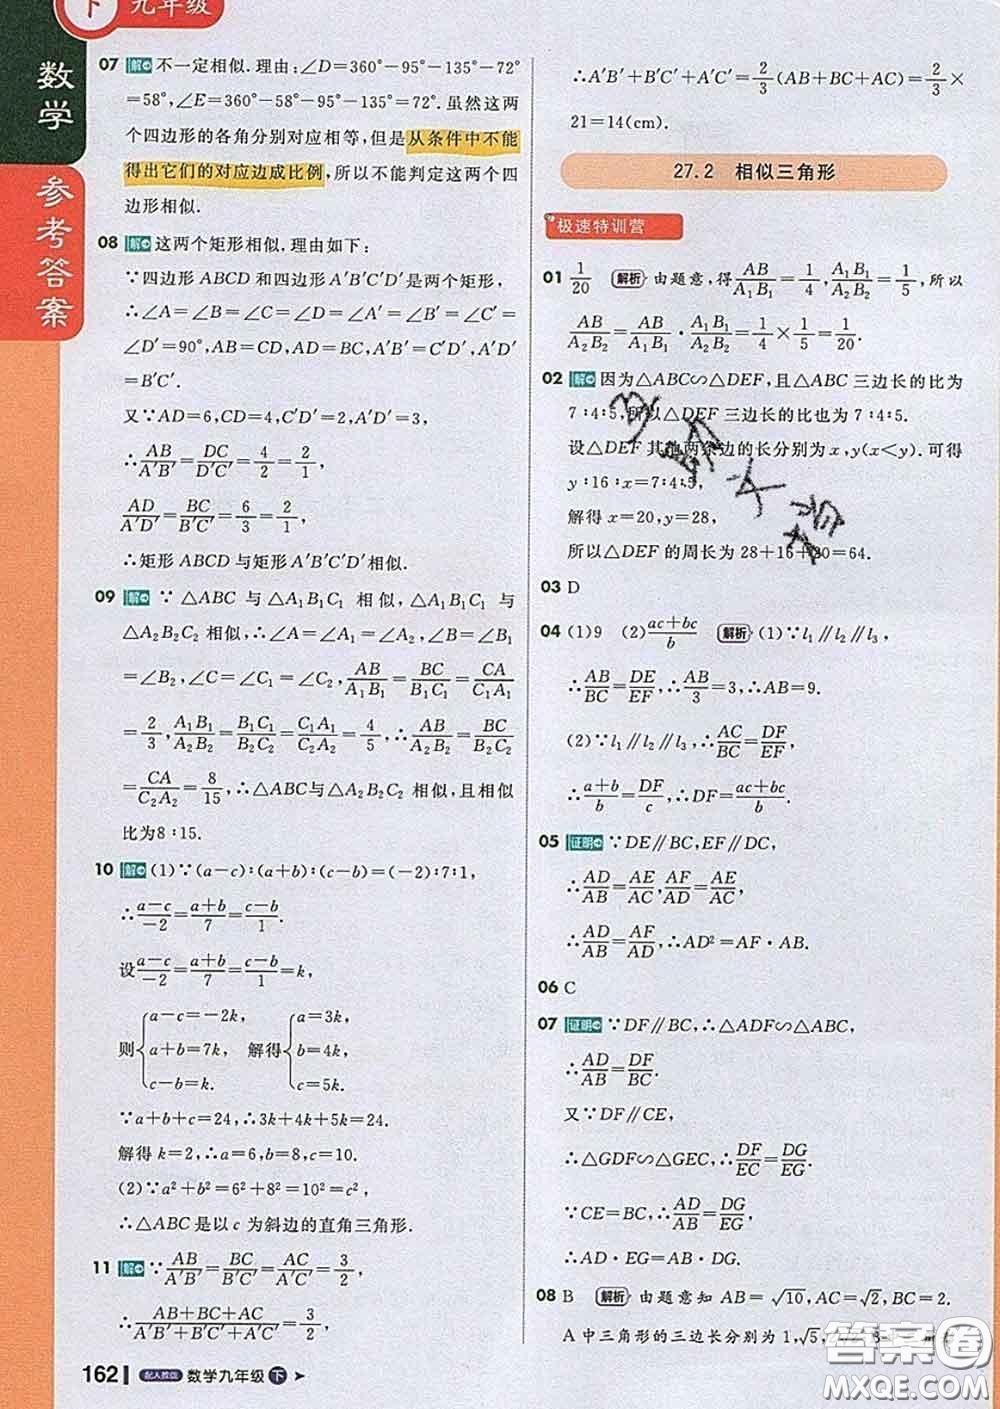 下 九年级
数学
参考答案
07 解 不一定相似.理由:∠D=360°-95°-135°-72°
=58°,∠E=360°-58°-95°-135°=72°.虽然这两
个四边形的各角分别对应相等,但是从条件中不能
得出它们的对应边成比例,所以不能判定这两个四
边形相似.
08 解 这两个矩形相似.理由如下:
∵四边形ABCD和四边形A′B′C′D′是两个矩形,
∴∠A=∠B=∠C=∠D=∠A′=∠B′=∠C′=
∠D′=90°,AB=CD,AD=BC,A′B′=C′D′,A′D′
=B′C′.
又∵AD=6,CD=4,C′D′=2,A′D′=3,
∴AB/A′B′=DC/D′C′=4/2=2/1,
AD/A′D′=BC/B′C′=6/3=2/1,
∴矩形ABCD与矩形A′B′C′D′相似.
09 解 ∵△ABC与△A₁B₁C₁相似,△A₁B₁C₁与
△A₂B₂C₂相似,∴∠A=∠A₁=∠A₂,∠B=∠B₁
=∠B₂,∠C=∠C₁=∠C₂,AB/A₁B₁=BC/B₁C₁=CA/C₁A₁
=2/3,A₁B₁/A₂B₂=B₁C₁/B₂C₂=C₁A₁/C₂A₂=4/5,∴AB/A₂B₂=BC/B₂C₂
=CA/C₂A₂=8/15,∴△ABC与△A₂B₂C₂相似,且相似
比为8:15.
10 解 (1)∵(a-c):(a+b):(c-b)=(-2):7:1,
∴a-c/-2=a+b/7=c-b/1.
设a-c/-2=a+b/7=c-b/1=k,
则{a-c=-2k, a+b=7k, c-b=k. 解得{a=3k, b=4k, c=5k.
∵a+b+c=24,∴3k+4k+5k=24,
解得k=2,∴a=6,b=8,c=10.
(2)∵a²+b²=6²+8²=10²=c²,
∴△ABC是以c为斜边的直角三角形.
11 解 ∵AB/A′B′=BC/B′C′=AC/A′C′=3/2,
∴AB+BC+AC/A′B′+B′C′+A′C′=3/2,
162 配人教版 数学九年级 下
∴A′B′+B′C′+A′C′=2/3(AB+BC+AC)=2/3×
21=14(cm).
27.2 相似三角形
极速特训营
01 1/20 解析 由题意,得AB/A₁B₁=1/4,A₁B₁/A₂B₂=1/5,所以
AB/A₂B₂=AB/A₁B₁·A₁B₁/A₂B₂=1/4×1/5=1/20.
02 解 因为△ABC∽△DEF,且△ABC三边长的比为
7:4:5,所以△DEF三边长的比也为7:4:5.
设△DEF其他两条边的长分别为x,y(x<y).可得
y:16:x=7:4:5,
解得x=20,y=28,
所以△DEF的周长为28+16+20=64.
03 D
04 (1)9 (2)ac+bc/b 解析 (1)∵l₁∥l₂∥l₃,
∴AB/BC=DE/EF,∴AB/3=3,∴AB=9.
(2)∵l₁∥l₂∥l₃,∴AC/BC=DF/EF,
∴a+b/b=DF/c,∴DF=ac+bc/b.
05 证明 ∵DE∥BC,EF∥DC,
∴AD/AB=AE/AC,AF/AD=AE/AC,
∴AD/AB=AF/AD,∴AD²=AF·AB.
06 C
07 证明 ∵DF∥BC,∴△ADF∽△ABC,
∴AD/AB=DF/BC.
又∵DF∥CE,
∴△GDF∽△GEC,∴DF/EC=DG/EG.
∵CE=BC,∴AD/AB=DG/EG,
∴AD·EG=AB·DG.
08 B 解析 由题意知AB=√10,AC=√2,BC=2.
A中三角形的三边长分别为1,√5,
答案圈
MXQE.COM